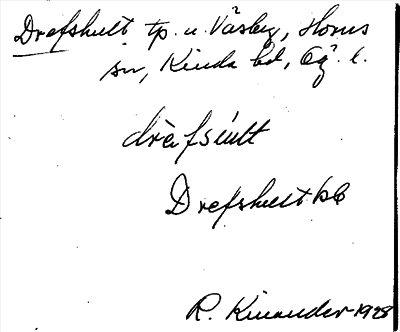 Drefshult tp. u. Väsby, Horns
sn, Kinda hd, Ög. l.
drä̀fsúlt
Drefshult kb
R. Kinander 1928